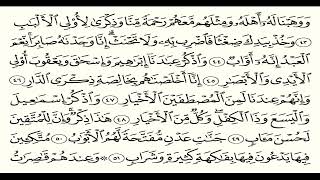 وَوَهَبْنَا لَهُۥٓ أَهْلَهُۥ وَمِثْلَهُم مَّعَهُمْ رَحْمَةً مِّنَّا وَذِكْرَىٰ لِأُو۟لِى ٱلْأَلْبَٰبِ
٤٣ وَخُذْ بِيَدِكَ ضِغْثًا فَٱضْرِب بِّهِۦ وَلَا تَحْنَثْ إِنَّا وَجَدْنَٰهُ صَابِرًا نِّعْمَ
ٱلْعَبْدُ إِنَّهُۥٓ أَوَّابٌ ٤٤ وَٱذْكُرْ عِبَٰدَنَآ إِبْرَٰهِيمَ وَإِسْحَٰقَ وَيَعْقُوبَ أُو۟لِى
ٱلْأَيْدِى وَٱلْأَبْصَٰرِ ٤٥ إِنَّآ أَخْلَصْنَٰهُم بِخَالِصَةٍ ذِكْرَى ٱلدَّارِ ٤٦
وَإِنَّهُمْ عِندَنَا لَمِنَ ٱلْمُصْطَفَيْنَ ٱلْأَخْيَارِ ٤٧ وَٱذْكُرْ إِسْمَٰعِيلَ
وَٱلْيَسَعَ وَذَا ٱلْكِفْلِ وَكُلٌّ مِّنَ ٱلْأَخْيَارِ ٤٨ هَٰذَا ذِكْرٌ وَإِنَّ لِلْمُتَّقِينَ
لَحُسْنَ مَـَٔابٍ ٤٩ جَنَّٰتِ عَدْنٍ مُّفَتَّحَةً لَّهُمُ ٱلْأَبْوَٰبُ ٥٠ مُتَّكِـِٔينَ
فِيهَا يَدْعُونَ فِيهَا بِفَٰكِهَةٍ كَثِيرَةٍ وَشَرَابٍ ٥١ وَعِندَهُمْ قَٰصِرَٰتُ